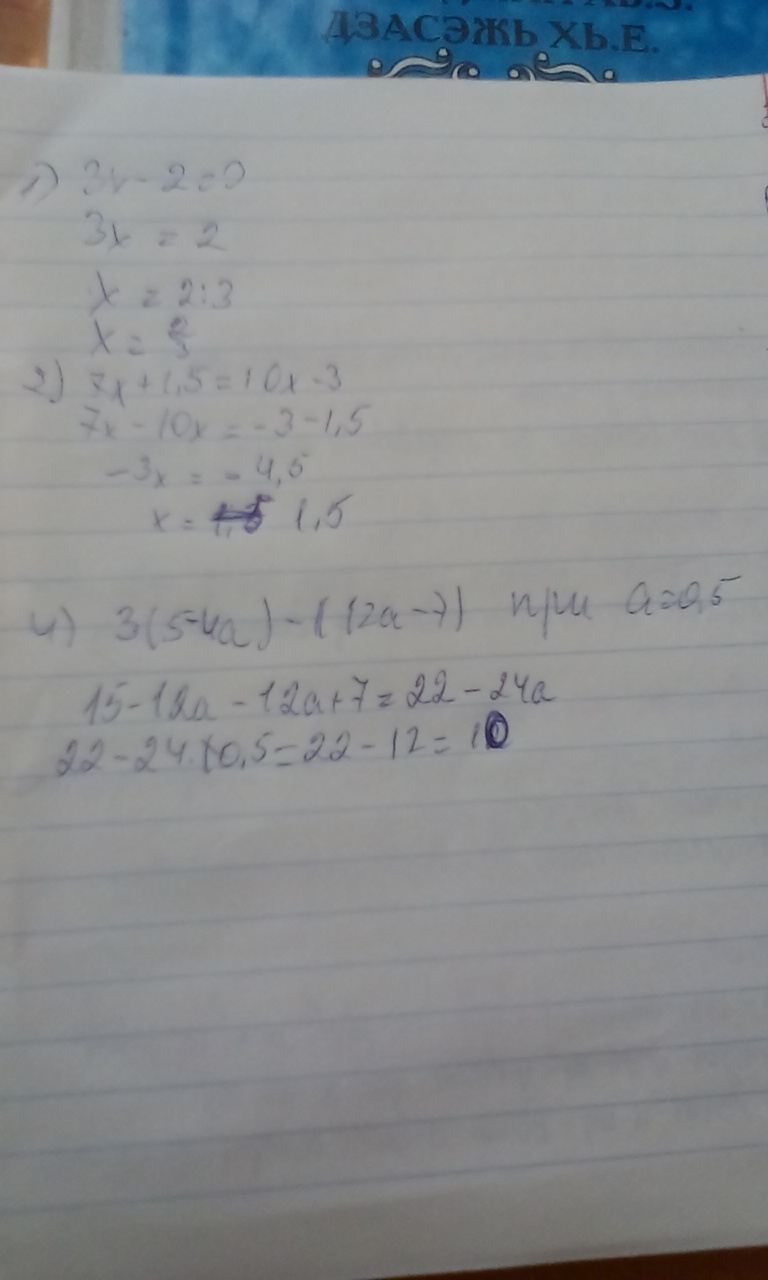 ДЗАСЭЖЬ ХЬ.Е.
1) 3x - 2 = 0
3x = 2
x = 2:3
x = 2/3
2) 7x + 1,5 = 10x - 3
7x - 10x = -3 - 1,5
-3x = -4,5
x = 1,5
4) 3(5-4a) - (12a - 7) при a=0,5
15 - 12a - 12a + 7 = 22 - 24a
22 - 24 · 0,5 = 22 - 12 = 10